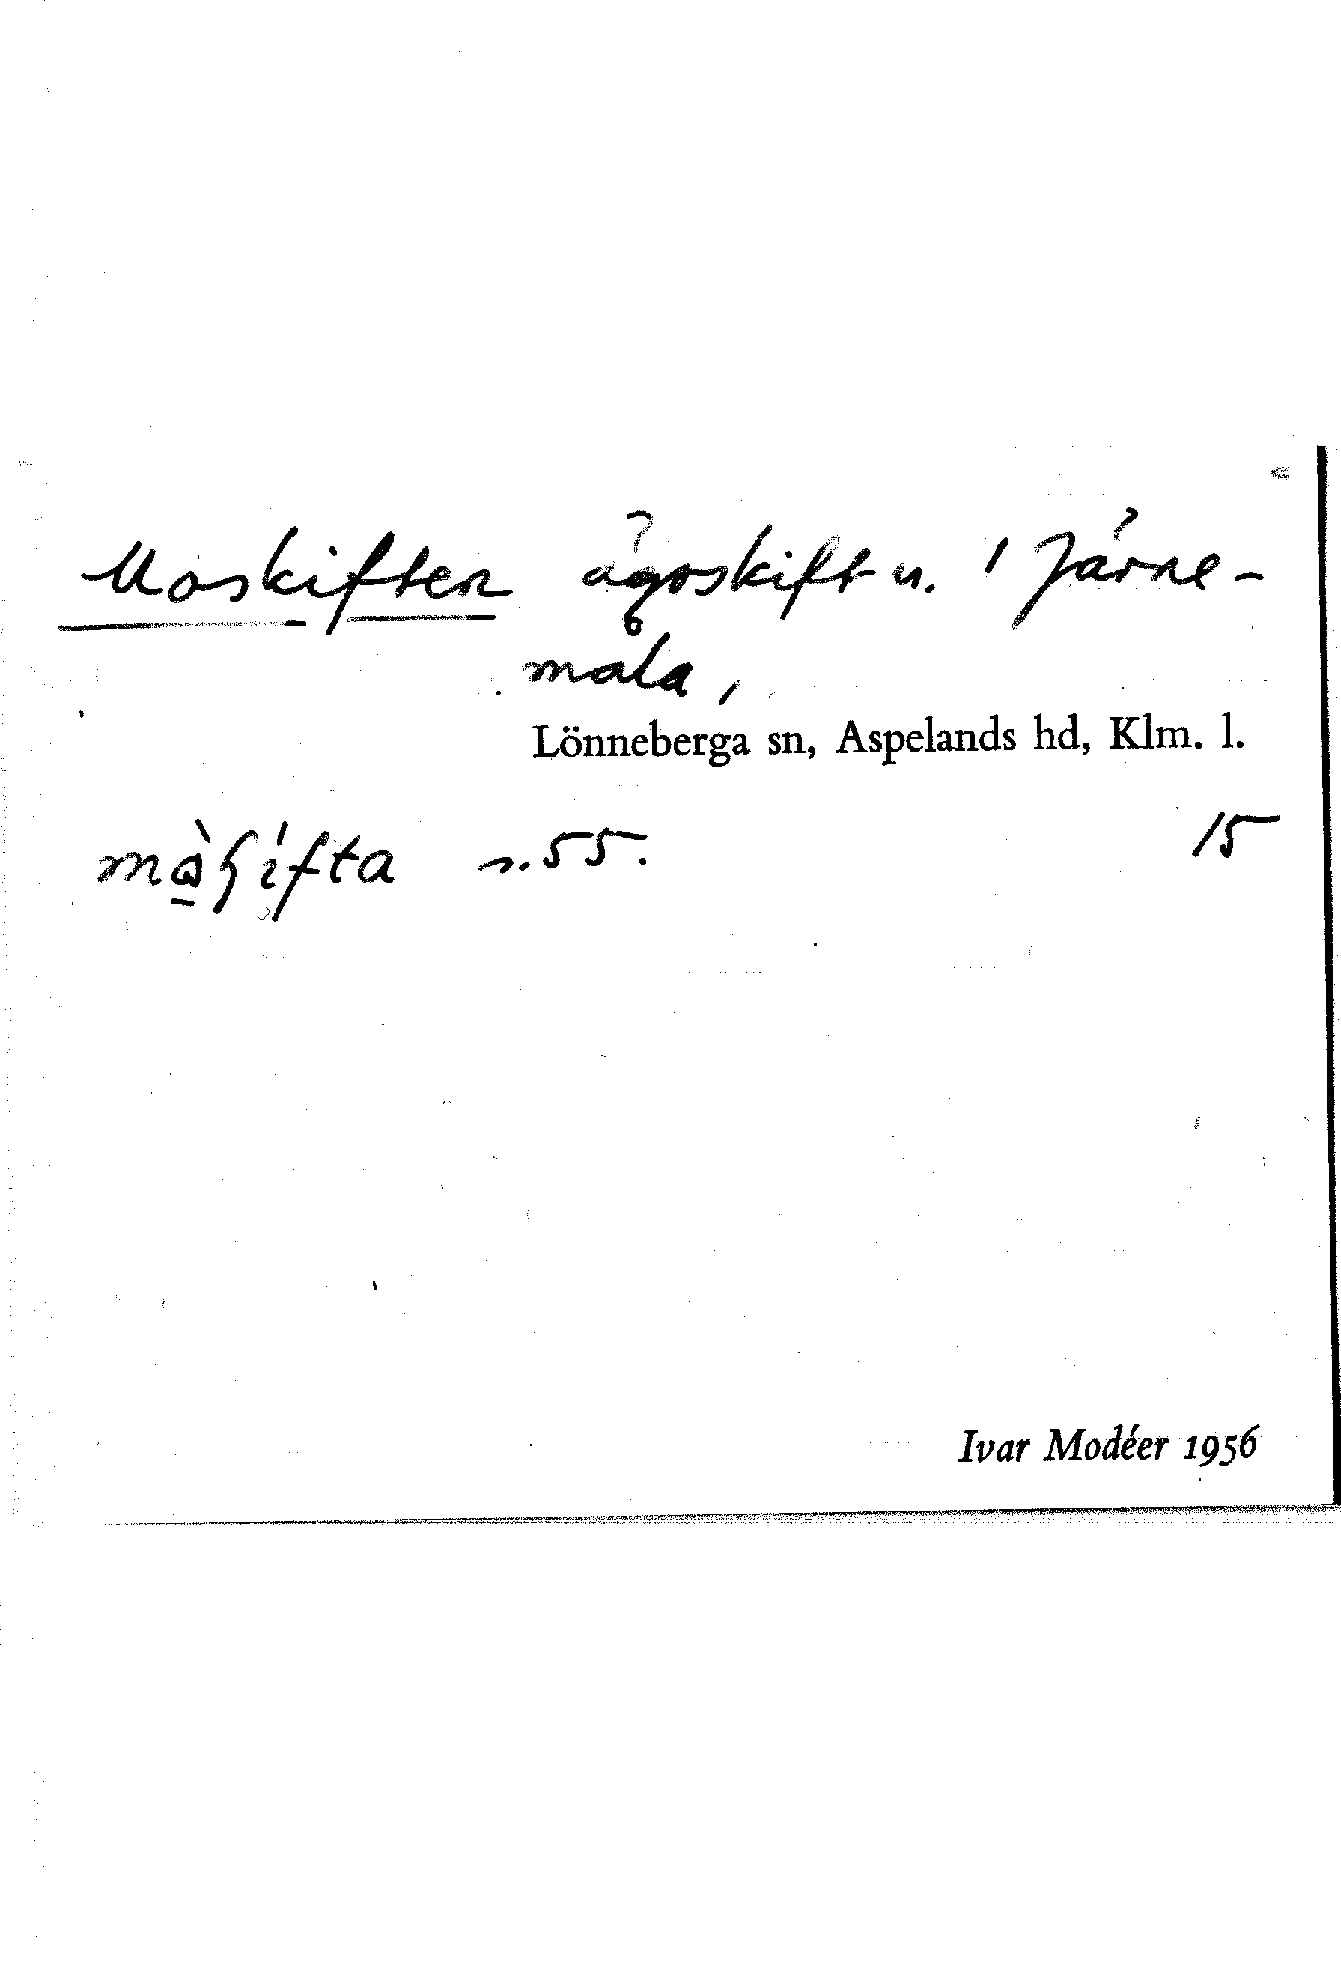 Moskiften ägoskift u. 1 Järne-
mala,
Lönneberga sn, Aspelands hd, Klm. l.
s. 55. 15
Ivar Modéer 1956